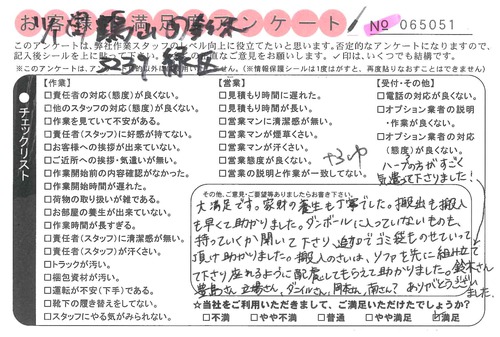 お客様満足度アンケート
No 065051
このアンケートは、弊社作業スタッフのレベル向上に役立てたいと思います。否定的なアンケートになりますので、
記入後シールを上に貼って下さい。
直なご意見をお願いします。✓印は、いくつでも結構です。
※このアンケートは、
(※情報保護シールは1度はがすと、再度貼りなおすことはできません)
チェックリスト
【作業】
□責任者の対応(態度)が良くない。
□他のスタッフの対応(態度)が良くない。
□作業を見ていて不安がある。
□責任者(スタッフ)に好感が持てない。
□お客様への挨拶が出来ていない。
□ご近所への挨拶・気遣いが無い。
□作業開始前の内容確認がなかった。
□作業開始時間が遅れた。
□荷物の取り扱いが雑である。
□お部屋の養生が出来ていない。
□作業時間が長すぎる。
□責任者(スタッフ)に清潔感が無い。
□責任者(スタッフ)が汗くさい。
□トラックが汚い。
□梱包資材が汚い。
□運転が不安(下手)である。
□靴下の履き替えをしてない。
□スタッフにやる気がみられない。
【営業】
□見積もり時間に遅れた。
□見積もり時間が長い。
□営業マンに清潔感が無い。
□営業マンが煙草くさい。
□営業マンが汗くさい。
□営業態度が良くない。
□営業の説明と作業が一致してない。
【受付・その他】
□電話の対応が良くない。
□オプション業者の説明
・作業が良くない。
□オプション業者の対応
(態度)が良くない。
ハープの方がすごく
気遣って下さりました!
その他、ご意見・ご要望等ありましたらお書き下さい。
大満足です。家財の養生も丁寧でした。搬出も搬入
も早くて助かりました。ダンボールに入っていないものも、
持っていくか聞いて下さり、追加でゴミ袋ものせていって
頂け助かりました。搬入のさいは、ソファを先に組み立て
て下さり座れるように配慮してもらえて助かりました。鈴木さん
豊島さん 立場さん、ダニイルさん、岡本さん、南さん? ありがとうござい
ました。
☆当社をご利用いただきまして、ご満足いただけたでしょうか?
□不満 □やや不満 □普通 □やや満足 ☑満足